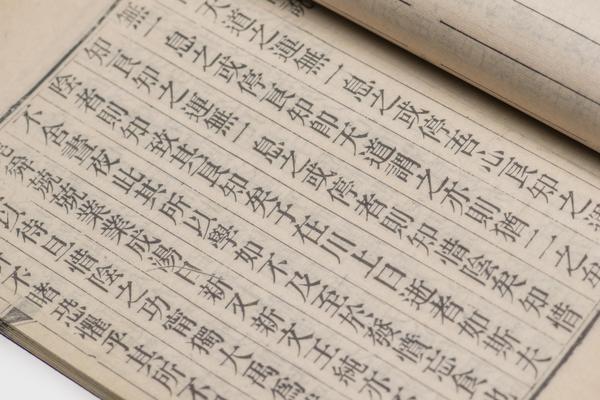 天道之運無一息之或停吾心良知之運
無一息之或停良知即天道謂之亦則猶二之矣
知良知之運無一息之或停者則知惜陰矣知惜
陰者則知致其良知矣子在川上曰逝者如斯夫
不舍晝夜此其所以學如不及至於發憤忘食也
舜兢兢業業成湯日新又新文王純亦
以待旦惜陰之功甯獨大禹爲
不睹恐懼乎其所不